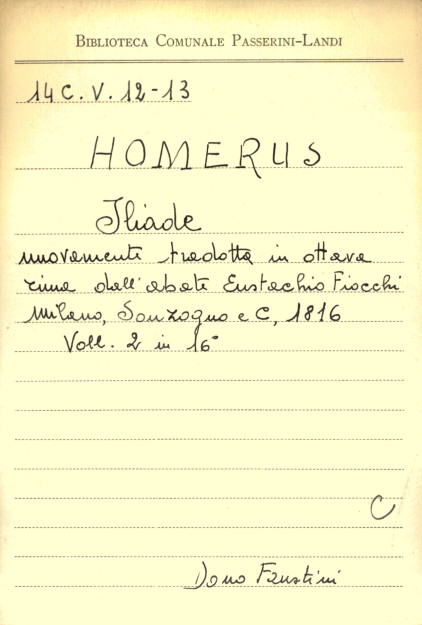 BIBLIOTECA COMUNALE PASSERINI-LANDI
14 C. V. 12-13
HOMERUS
Iliade
nuovamente tradotta in ottava
rima dall'abate Eustachio Fiocchi
Milano, Sonzogno e C, 1816
Voll. 2 in 16°
C
Dono Faustini